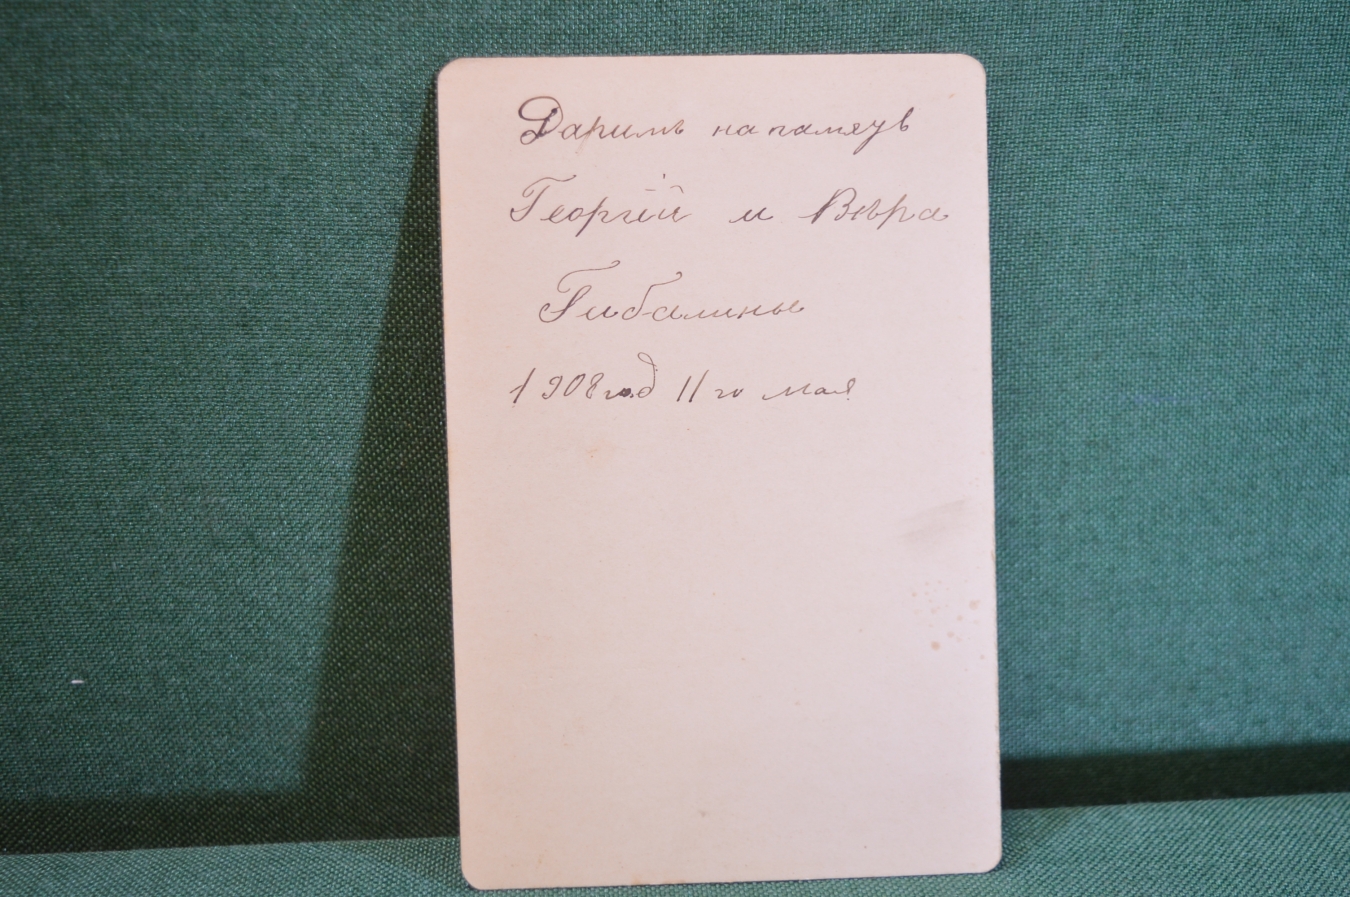 Даримъ на память
Георгій и Вѣра
Гибалины
1908 год 11 го мая